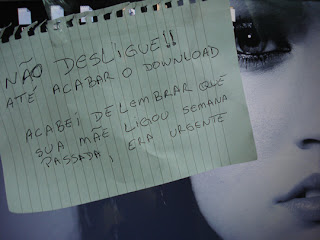 NÃO DESLIGUE!!
ATÉ ACABAR O DOWNLOAD
ACABEI DE LEMBRAR QUE
SUA MÃE LIGOU SEMANA
PASSADA, ERA URGENTE